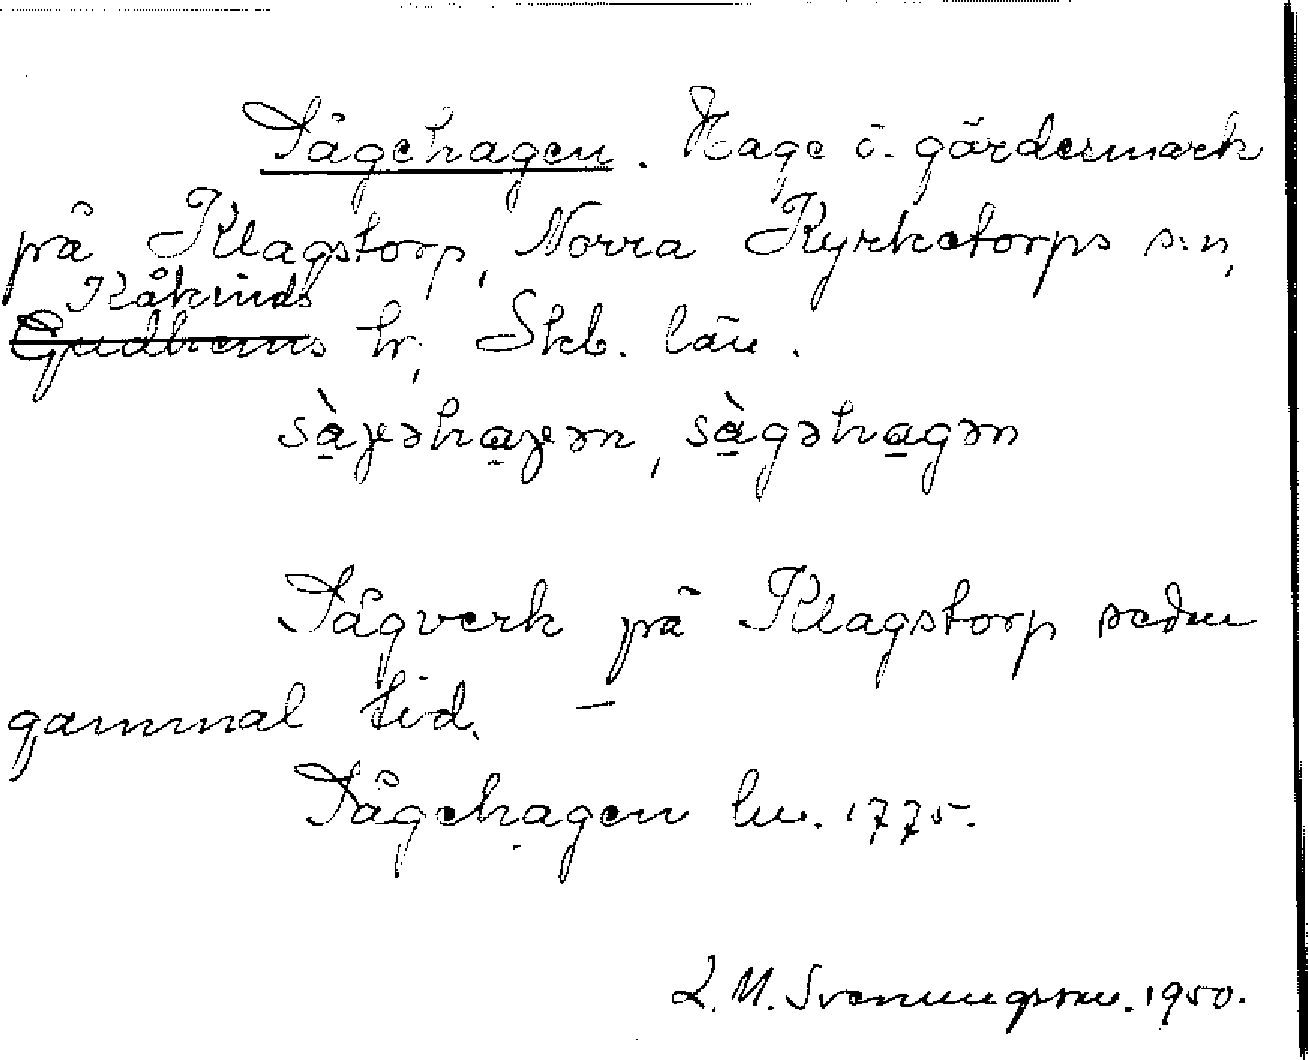 Sågehagen. Hage o. gärdesmark
på Klagstorp, Norra Kyrketorps s:n,
Kåkinds
Gudhems hd, Skb. län.
sàgəhagən, sàgəhagən
Sågverk på Klagstorp sedan
gammal tid. –
Sågehagen lm. 1775.
L. M. Svenungsson. 1950.